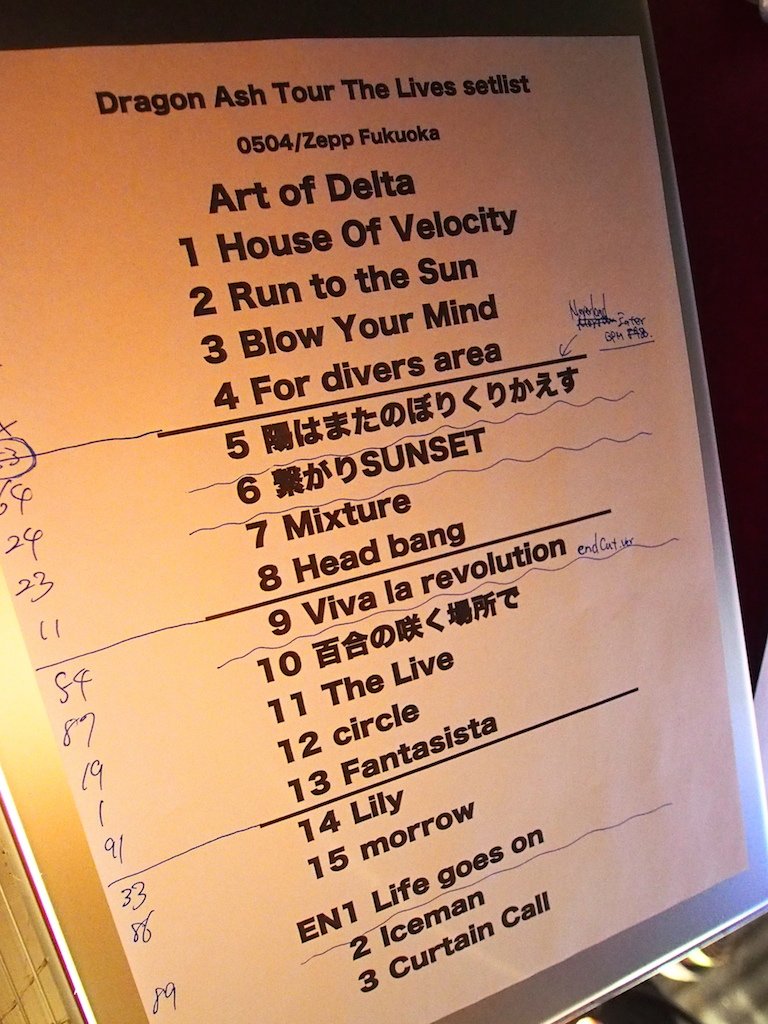 Dragon Ash Tour The Lives setlist
0504/Zepp Fukuoka
Art of Delta
1 House Of Velocity
2 Run to the Sun
3 Blow Your Mind
4 For divers area
5 陽はまたのぼりくりかえす
6 繋がりSUNSET
7 Mixture
8 Head bang
9 Viva la revolution endCut.ver
10 百合の咲く場所で
11 The Live
12 circle
13 Fantasista
14 Lily
15 morrow
EN1 Life goes on
2 Iceman
3 Curtain Call
64
24
23
11
54
87
19
1
91
33
86
89